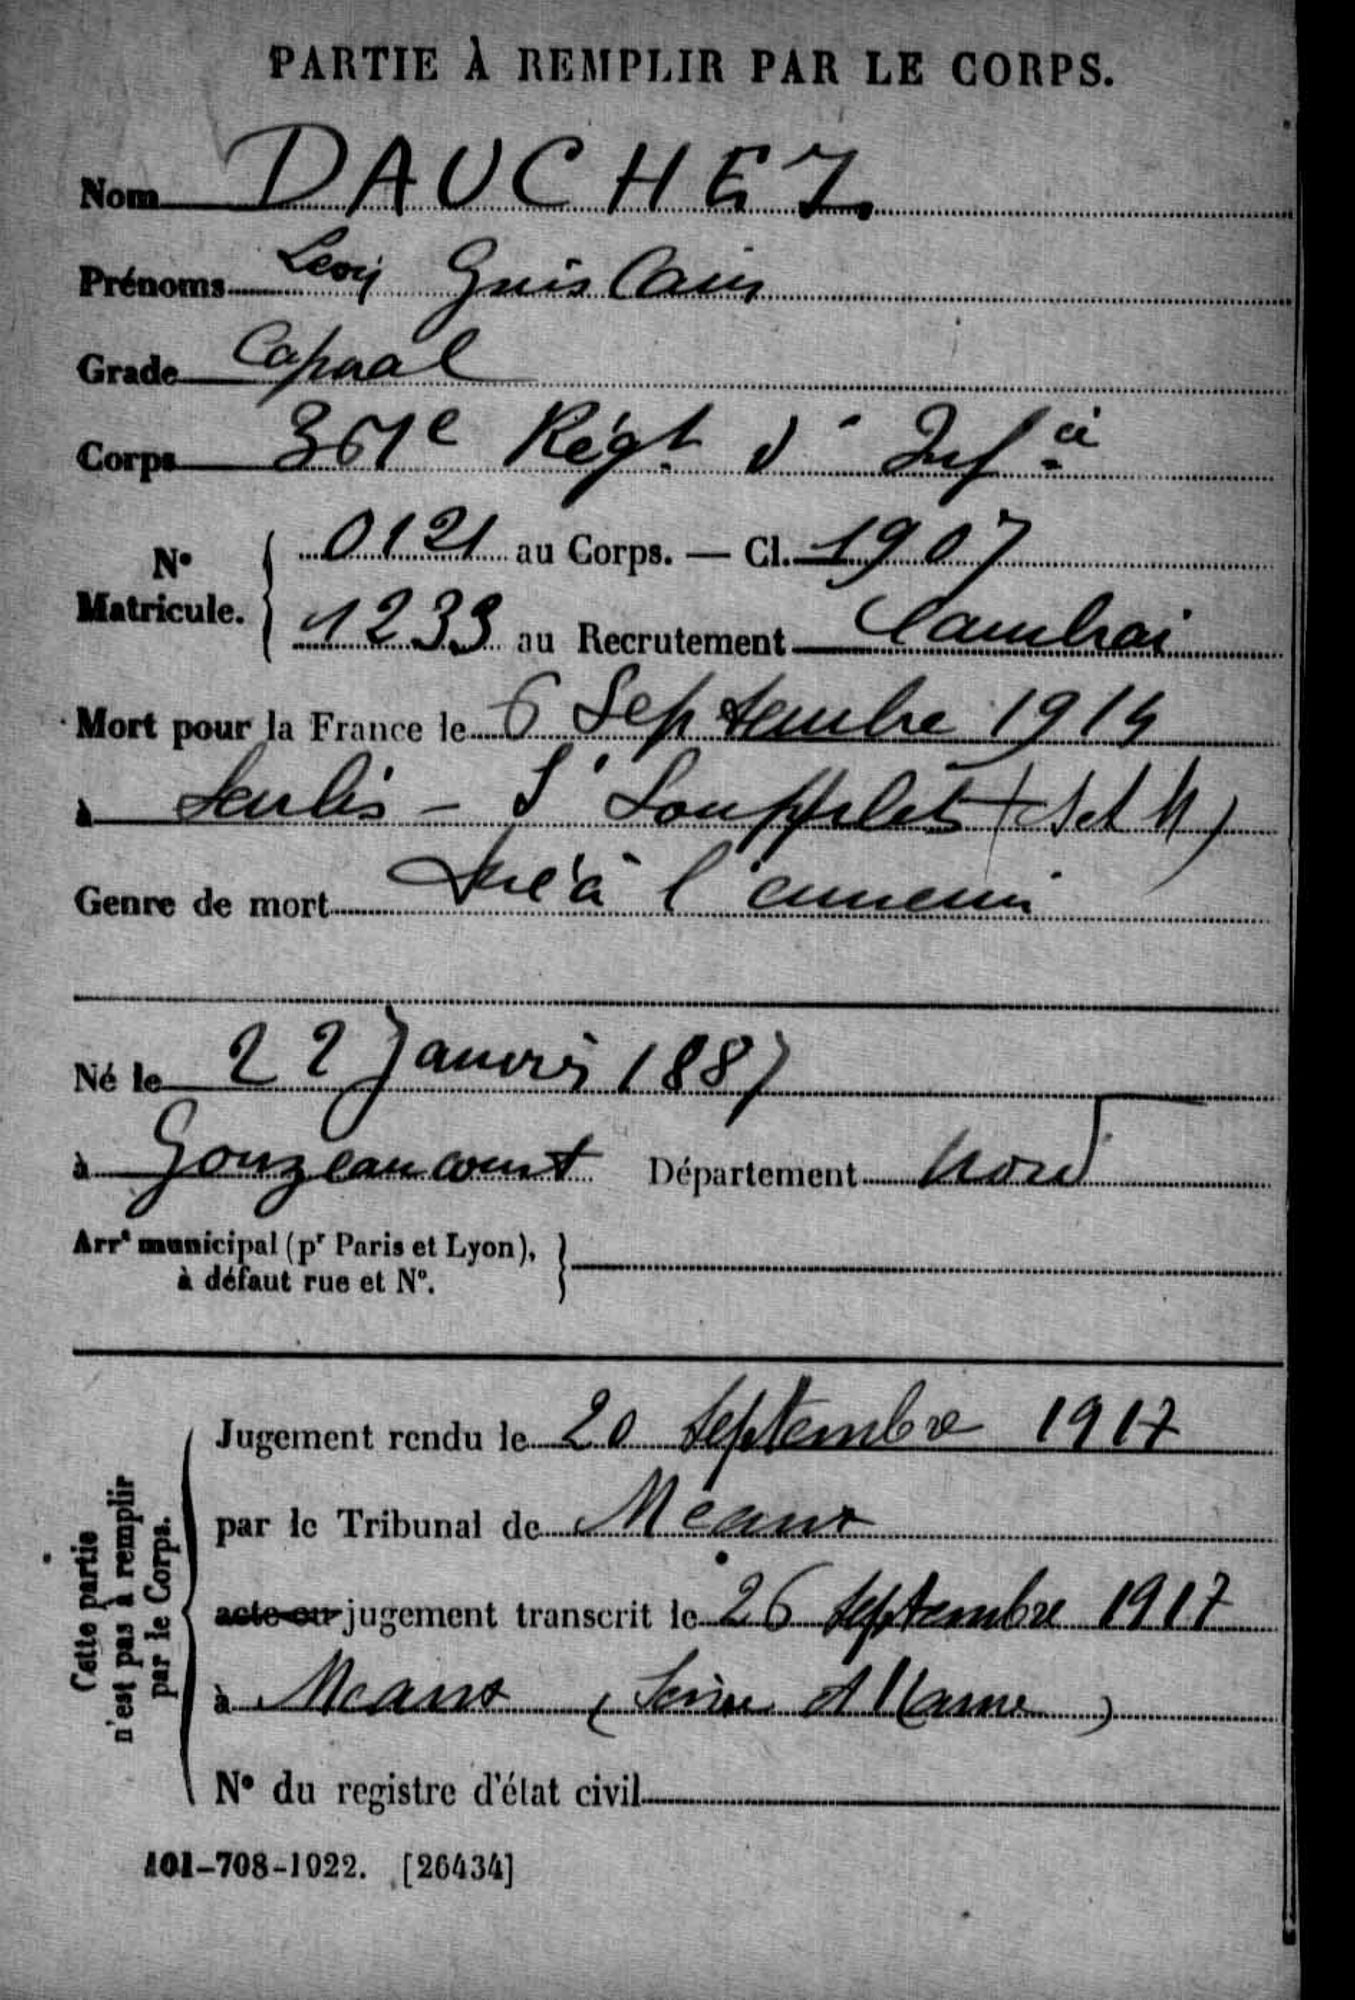 PARTIE À REMPLIR PAR LE CORPS.
Nom DAUCHEZ
Prénoms Léon Guislain
Grade Caporal
Corps 361e Régt d'Infie
No Matricule. { 0121 au Corps. — Cl. 1907
1233 au Recrutement Cambrai
Mort pour la France le 6 Septembre 1914
à Senlis - St Soupplets (S et M)
Genre de mort Tué à l'ennemi
Né le 22 Janvier 1887
à Gouzeaucourt Département Nord
Arrt municipal (pr Paris et Lyon), à défaut rue et No. }
Cette partie n'est pas à remplir par le Corps.
Jugement rendu le 20 Septembre 1917
par le Tribunal de Meaux
acte ou jugement transcrit le 26 Septembre 1917
à Meaux (Seine et Marne)
No du registre d'état civil
101-708-1922. [26434]